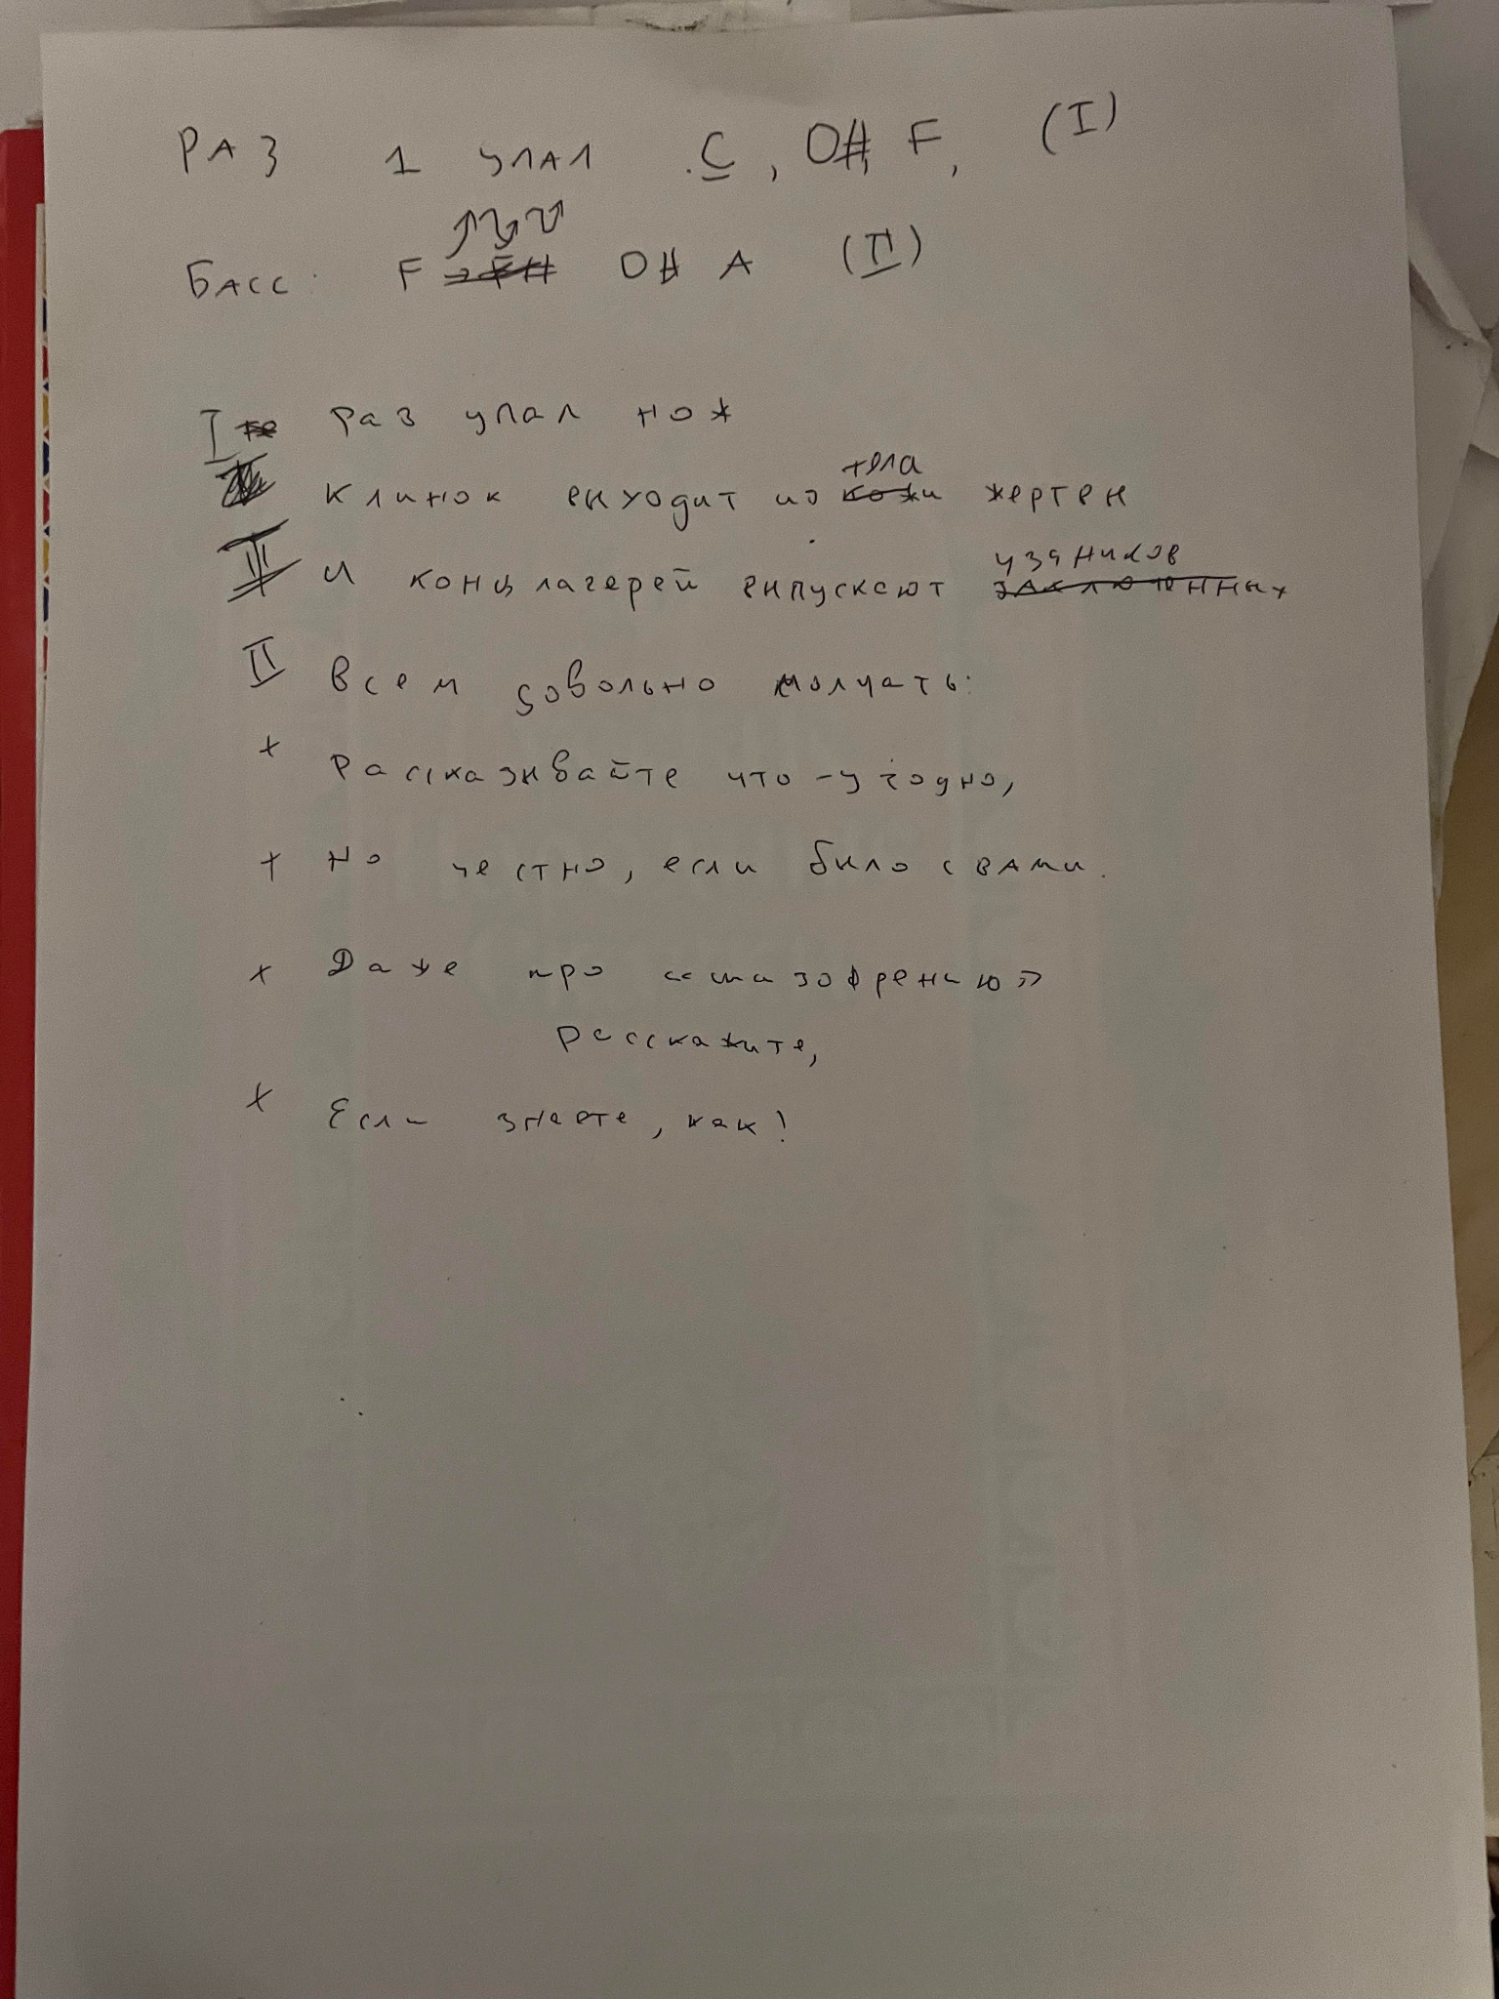 РАЗ 1 УПАЛ .C, D#, F, (I)
БАСС: F D# A (II)
I Раз упал нож
Клинок выходит из тела жертвы
И концлагерей выпускают узников
II Всем довольно молчать:
+ Рассказывайте что-угодно,
+ Но честно, если было с вами.
+ Даже про «шизофрению»
расскажите,
+ Если знаете, как!